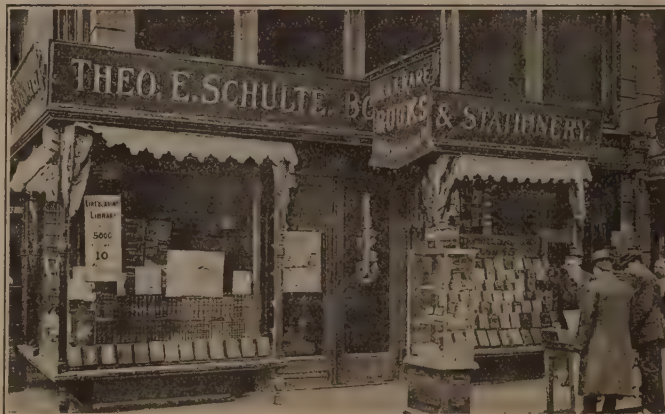 THEO. E. SCHULTE. BO
BOOKS & STATIONERY.
LIBRARY
5000
10